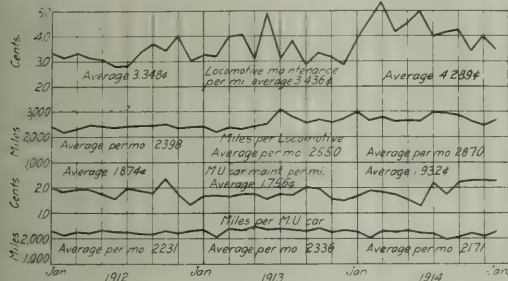 5.0
Cents.
4.0
3.0
2.0
Average 3.348¢
Locomotive maintenance
per mi. average 3.436¢
Average 4.289¢
Miles
3,000
2,000
1,000
Average per mo 2398
Miles per Locomotive
Average per mo 2550
Average per mo 2870
Cents
2.0
1.0
Average 1.874¢
M.U car maint per mi.
Average 1.756¢
Average 1.932¢
Miles
2,000
1,000
Miles per M.U car
Average per mo 2231
Average per mo 2336
Average per mo 2171
Jan 1912 Jan 1913 Jan 1914 Jan